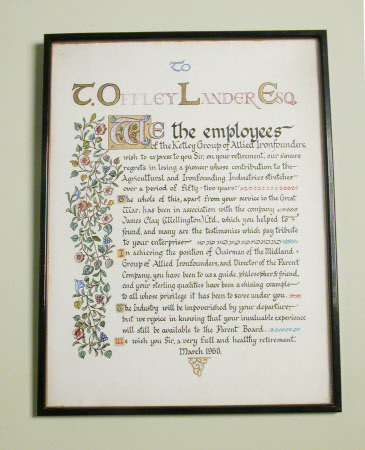 To
T. Offley Lander Esq.
We the employees
of the Ketley Group of Allied Ironfounders,
wish to express to you Sir, on your retirement, our sincere
regrets in losing a pioneer whose contribution to the
Agricultural and Ironfounding Industries stretches
over a period of fifty-two years.
The whole of this, apart from your service in the Great
War, has been in association with the company
James Clay (Wellington) Ltd., which you helped to
found, and many are the testimonies which pay tribute
to your enterprise
In achieving the position of Chairman of the Midland
Group of Allied Ironfounders, and Director of the Parent
Company, you have been to us a guide, philosopher & friend,
and your sterling qualities have been a shining example
to all whose privilege it has been to serve under you.
The Industry will be impoverished by your departure,
but we rejoice in knowing that your invaluable experience
will still be available to the Parent Board.
We wish you Sir, a very full and healthy retirement.
March 1960.